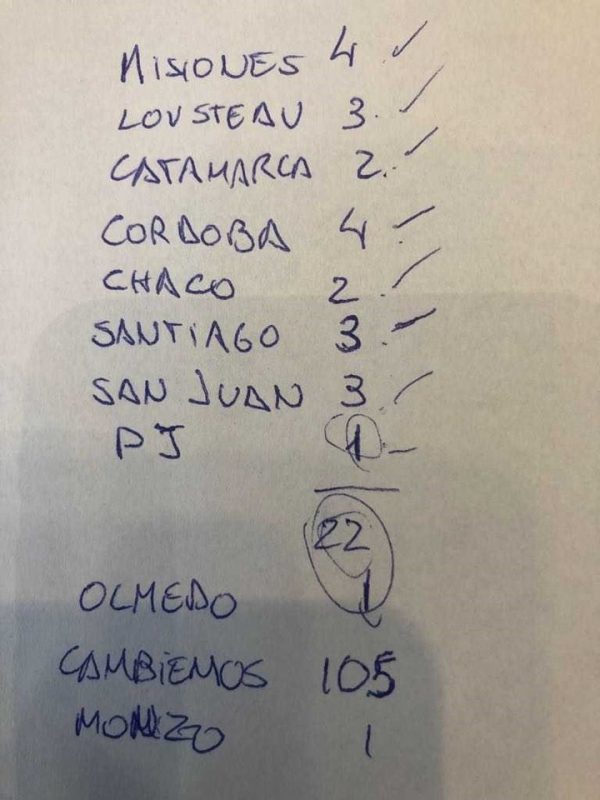 MISIONES 4 ✓
LOUSTEAU 3. ✓
CATAMARCA 2. ✓
CORDOBA 4 ✓
CHACO 2 ✓
SANTIAGO 3. ✓
SAN JUAN 3 ✓
PJ 1. –
22
OLMEDO 1
CAMBIEMOS 105
MONZO 1